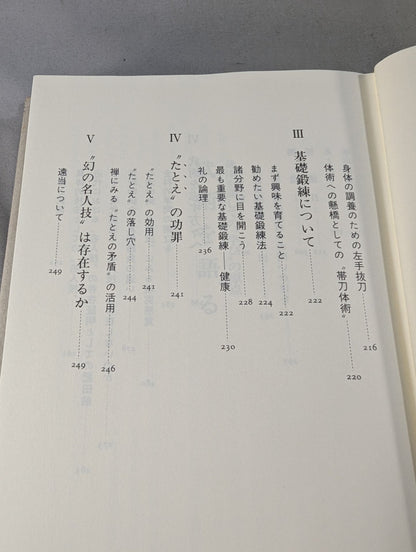 身体の調養のための左手抜刀 216
体術への懸橋としての〝帯刀体術〟 220
III 基礎鍛練について 222
まず興味を育てること 222
勧めたい基礎鍛練法 224
諸分野に目を開こう 228
最も重要な基礎鍛練——健康 230
礼の論理 236
IV 〝たとえ〟の功罪 241
〝たとえ〟の効用 241
〝たとえ〟の落し穴 244
禅にみる〝たとえの矛盾〟の活用 246
V 〝幻の名人技〟は存在するか 249
遠当について 249